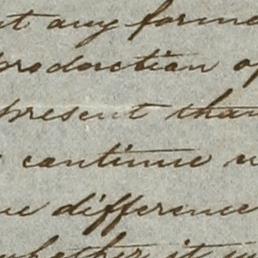 any forme
production of
present than
continue
difference
whether it w